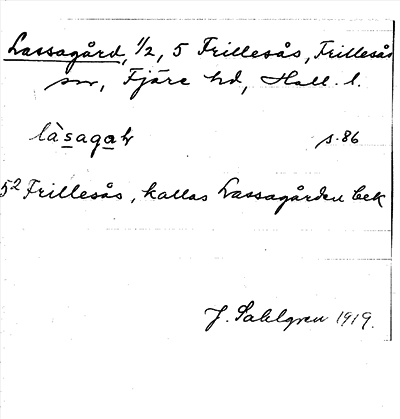 Lassagård, 1/2, 5 Frillesås, Frillesås
sn, Fjäre hd, Hall. l.
làsagaɫv s. 86
5² Frillesås, kallas Lassagården bek
J. Sahlgren 1919.